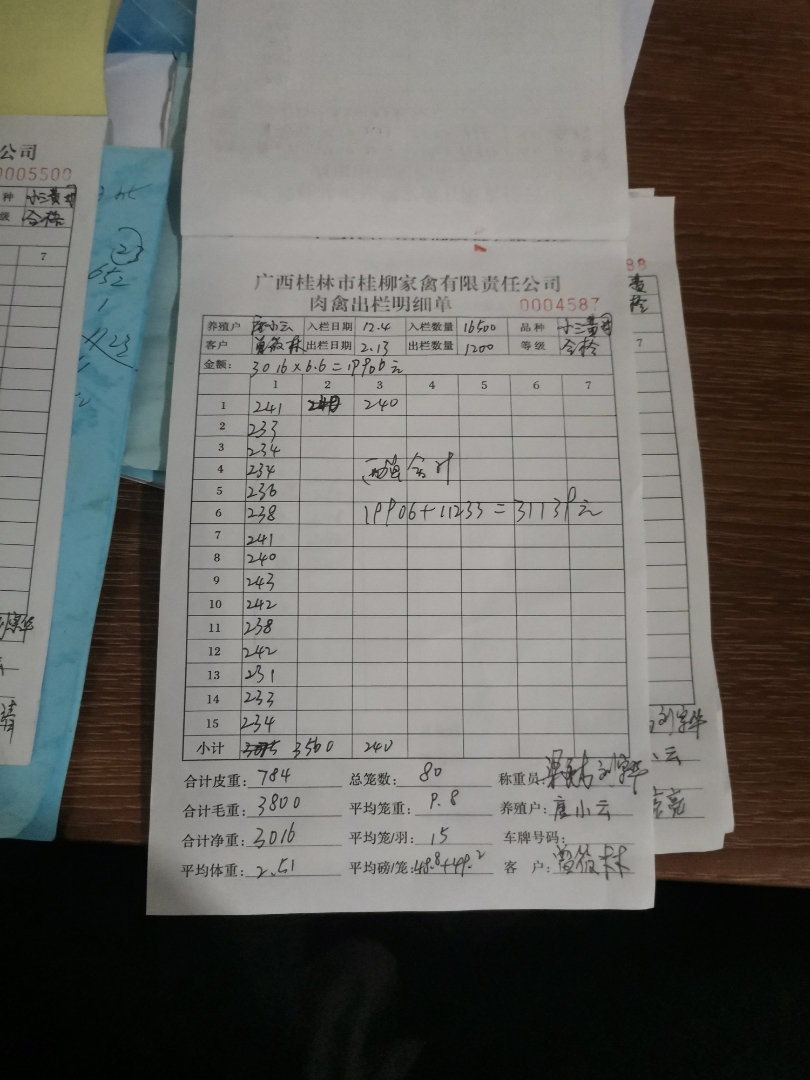 公司
0005500
种 小三黄母
级 合格
7
23
652
1
广西桂林市桂柳家禽有限责任公司
肉禽出栏明细单 0004587
养殖户 唐小云 入栏日期 12.4 入栏数量 16500 品种 小三黄母
客户 出栏日期 2.13 出栏数量 1200 等级 合格
金额: 3016×6.6=19906元
1 2 3 4 5 6 7
1 241 240
2 233
3 234
4 234 两单合计
5 236
6 238 19906+11233=31139元
7 241
8 240
9 243
10 242
11 238
12 242
13 231
14 233
15 234
小计 3560 240
合计皮重: 784 总笼数: 80 称重员: 刘宗华
合计毛重: 3800 平均笼重: 9.8 养殖户: 唐小云
合计净重: 3016 平均笼/羽: 15 车牌号码:
平均体重: 2.51 平均磅/笼: 48.8+49.2 客户:
88
黄
格
7
刘宗华
小云